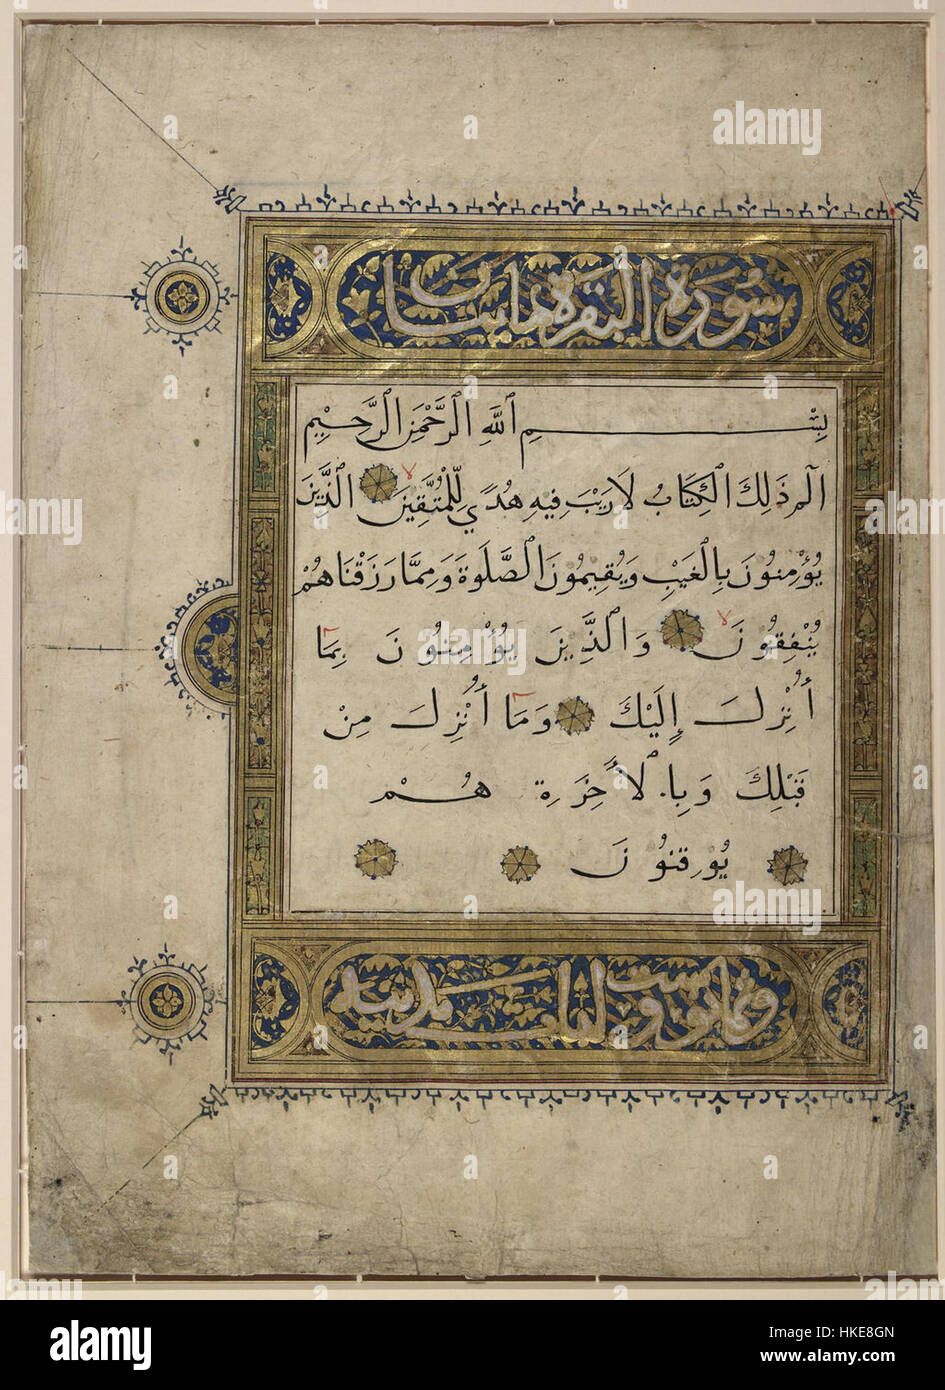 سورة البقرة مايتان
بِسْمِ ٱللَّهِ ٱلرَّحْمَٰنِ ٱلرَّحِيمِ
الٓمٓ ذَلِكَ ٱلْكِتَابُ لَا رَيْبَ فِيهِ هُدًى لِّلْمُتَّقِينَ ٱلَّذِينَ
يُؤْمِنُونَ بِالْغَيْبِ وَيُقِيمُونَ ٱلصَّلَوةَ وَمِمَّا رَزَقْنَاهُمْ
يُنْفِقُونَ وَٱلَّذِينَ يُؤْمِنُونَ بِمَا
أُنْزِلَ إِلَيْكَ وَمَا أُنْزِلَ مِنْ
قَبْلِكَ وَبِالْأَخِرَةِ هُمْ
يُوقِنُونَ
وثمانون وست ايات مدنية
alamy
Image ID: HKE8GN
www.alamy.com